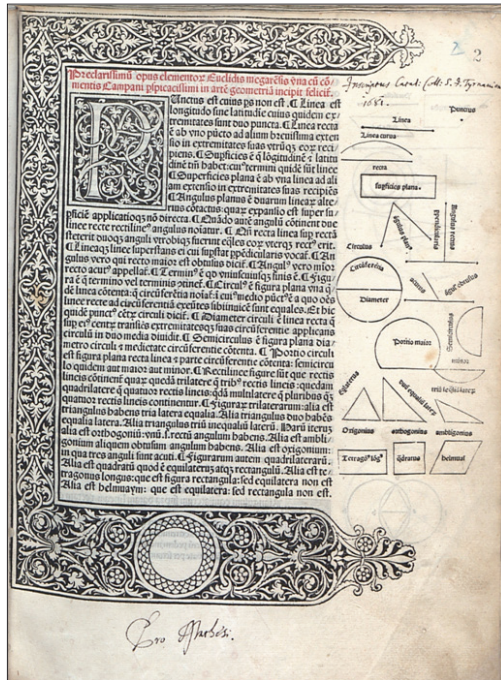 2
Inscriptus Catal. Coll. S. J. Tyrnaviæ
1681.
Preclarissimū opus elementoꝝ Euclidis megarēsis vna cū cō⸗
mentis Campani pspicacissimi in artē geometriā incipit felicit.
PUnctus est cuius ps non est. ⁋ Linea est
longitudo sine latitudie cuius quidem ex⸗
tremitates sunt duo puncta. ⁋ Linea recta
ē ab vno pūcto ad alium breuissima exten⸗
sio in extremitates suas vtrūqꝫ eoꝝ reci⸗
piens. ⁋ Superficies ē q̄ lōgitudinē ⁊ latitu
dinē tm̄ habet: cuꝰ termini quidē sūt linee.
⁋ Superficies plana ē ab vna linea ad ali
am extensio in extremitates suas recipiēs
⁋ Angulus planus ē duarum linearꝝ alte⸗
rius cōtactus: quaꝝ expansio est super su⸗
pficiē applicatioqꝫ nō directa. ⁋ Quādo aute angulū cōtinent due
linee recte rectilineꝰ angulus noiatur. ⁋ Qn̄ recta linea sup rectā
steterit duoqꝫ anguli vtrobiqꝫ fuerint eq̄les eoꝝ vterqꝫ rectꝰ erit.
⁋ Lineaqꝫ linee superstans ei cui supstat ppēdicularis vocaꞇ̃. ⁋ An
gulus vero qui recto maior est obtusus diciꞇ̃. ⁋ Angulꝰ vero mīor
recto acutꝰ appellaꞇ̃. ⁋ Terminꝰ ē qd̄ vniuscuiusqꝫ finis ē. ⁋ Figu⸗
ra ē q̄ termino vel terminis ꝯtineꞇ̃. ⁋ Circulꝰ ē figura plana vna q⸗
dē linea cōtenta: q̄ circūferētia noiaꞇ̃: in cuiꝰ medio pūctꝰ ē a quo oēs
linee recte ad circūferētiā exeūtes sibiinuicē sunt equales. Et hic
quidē punctꝰ cētꝝ circuli diciꞇ̃. ⁋ Diameter circuli ē linea recta que
sup eiꝰ centꝝ trāsiēs extremitatesqꝫ suas circūferentie applicans
circulū in duo media diuidit. ⁋ Semicirculus ē figura plana dia⸗
metro circuli ⁊ medietate circūferētie cōtenta. ⁋ Portio circuli
est figura plana recta linea ⁊ parte circūferētie cōtenta: semicircu⸗
lo quidem aut maior aut minor. ⁋ Rectilinee figure sūt que rectis
lineis cōtinenꞇ̃ quaꝝ quedā trilatere q̄ tribꝰ rectis lineis: quedam
quadrilatere q̄ quatuor rectis lineis: qdā multilatere q̄ pluribus qꝫ
quatuor rectis lineis continentur. ⁋ Figuraꝝ trilateraꝝ: alia est
triangulus habens tria latera equalia. Alia triangulus duo habēs
equalia latera. Alia triangulus triū inequaliū laterū. Haꝝ iterum
alia est orthogoniū: vnū .f. rectū angulum habens. Alia est ambli⸗
gonium aliquem obtusum angulum habens. Alia est oxigonium:
in qua tres anguli sunt acuti. ⁋ Figurarum autem quadrilateraꝝ:
Alia est quadratū quod ē equilateꝝ atqꝫ rectangulū. Alia est te⸗
tragonus longus: que est figura rectangula: sed equilatera non est.
Alia est helmuaym: que est equilatera: sed rectangula non est.
Punctus
Linea
Linea curua
recta
supficies plana.
Circulus
Diameter
Portio maior
Oxigonius
orthogonius
ambligonius
Tetragonꝰ lōgꝰ
q̄dratus
helmuaī